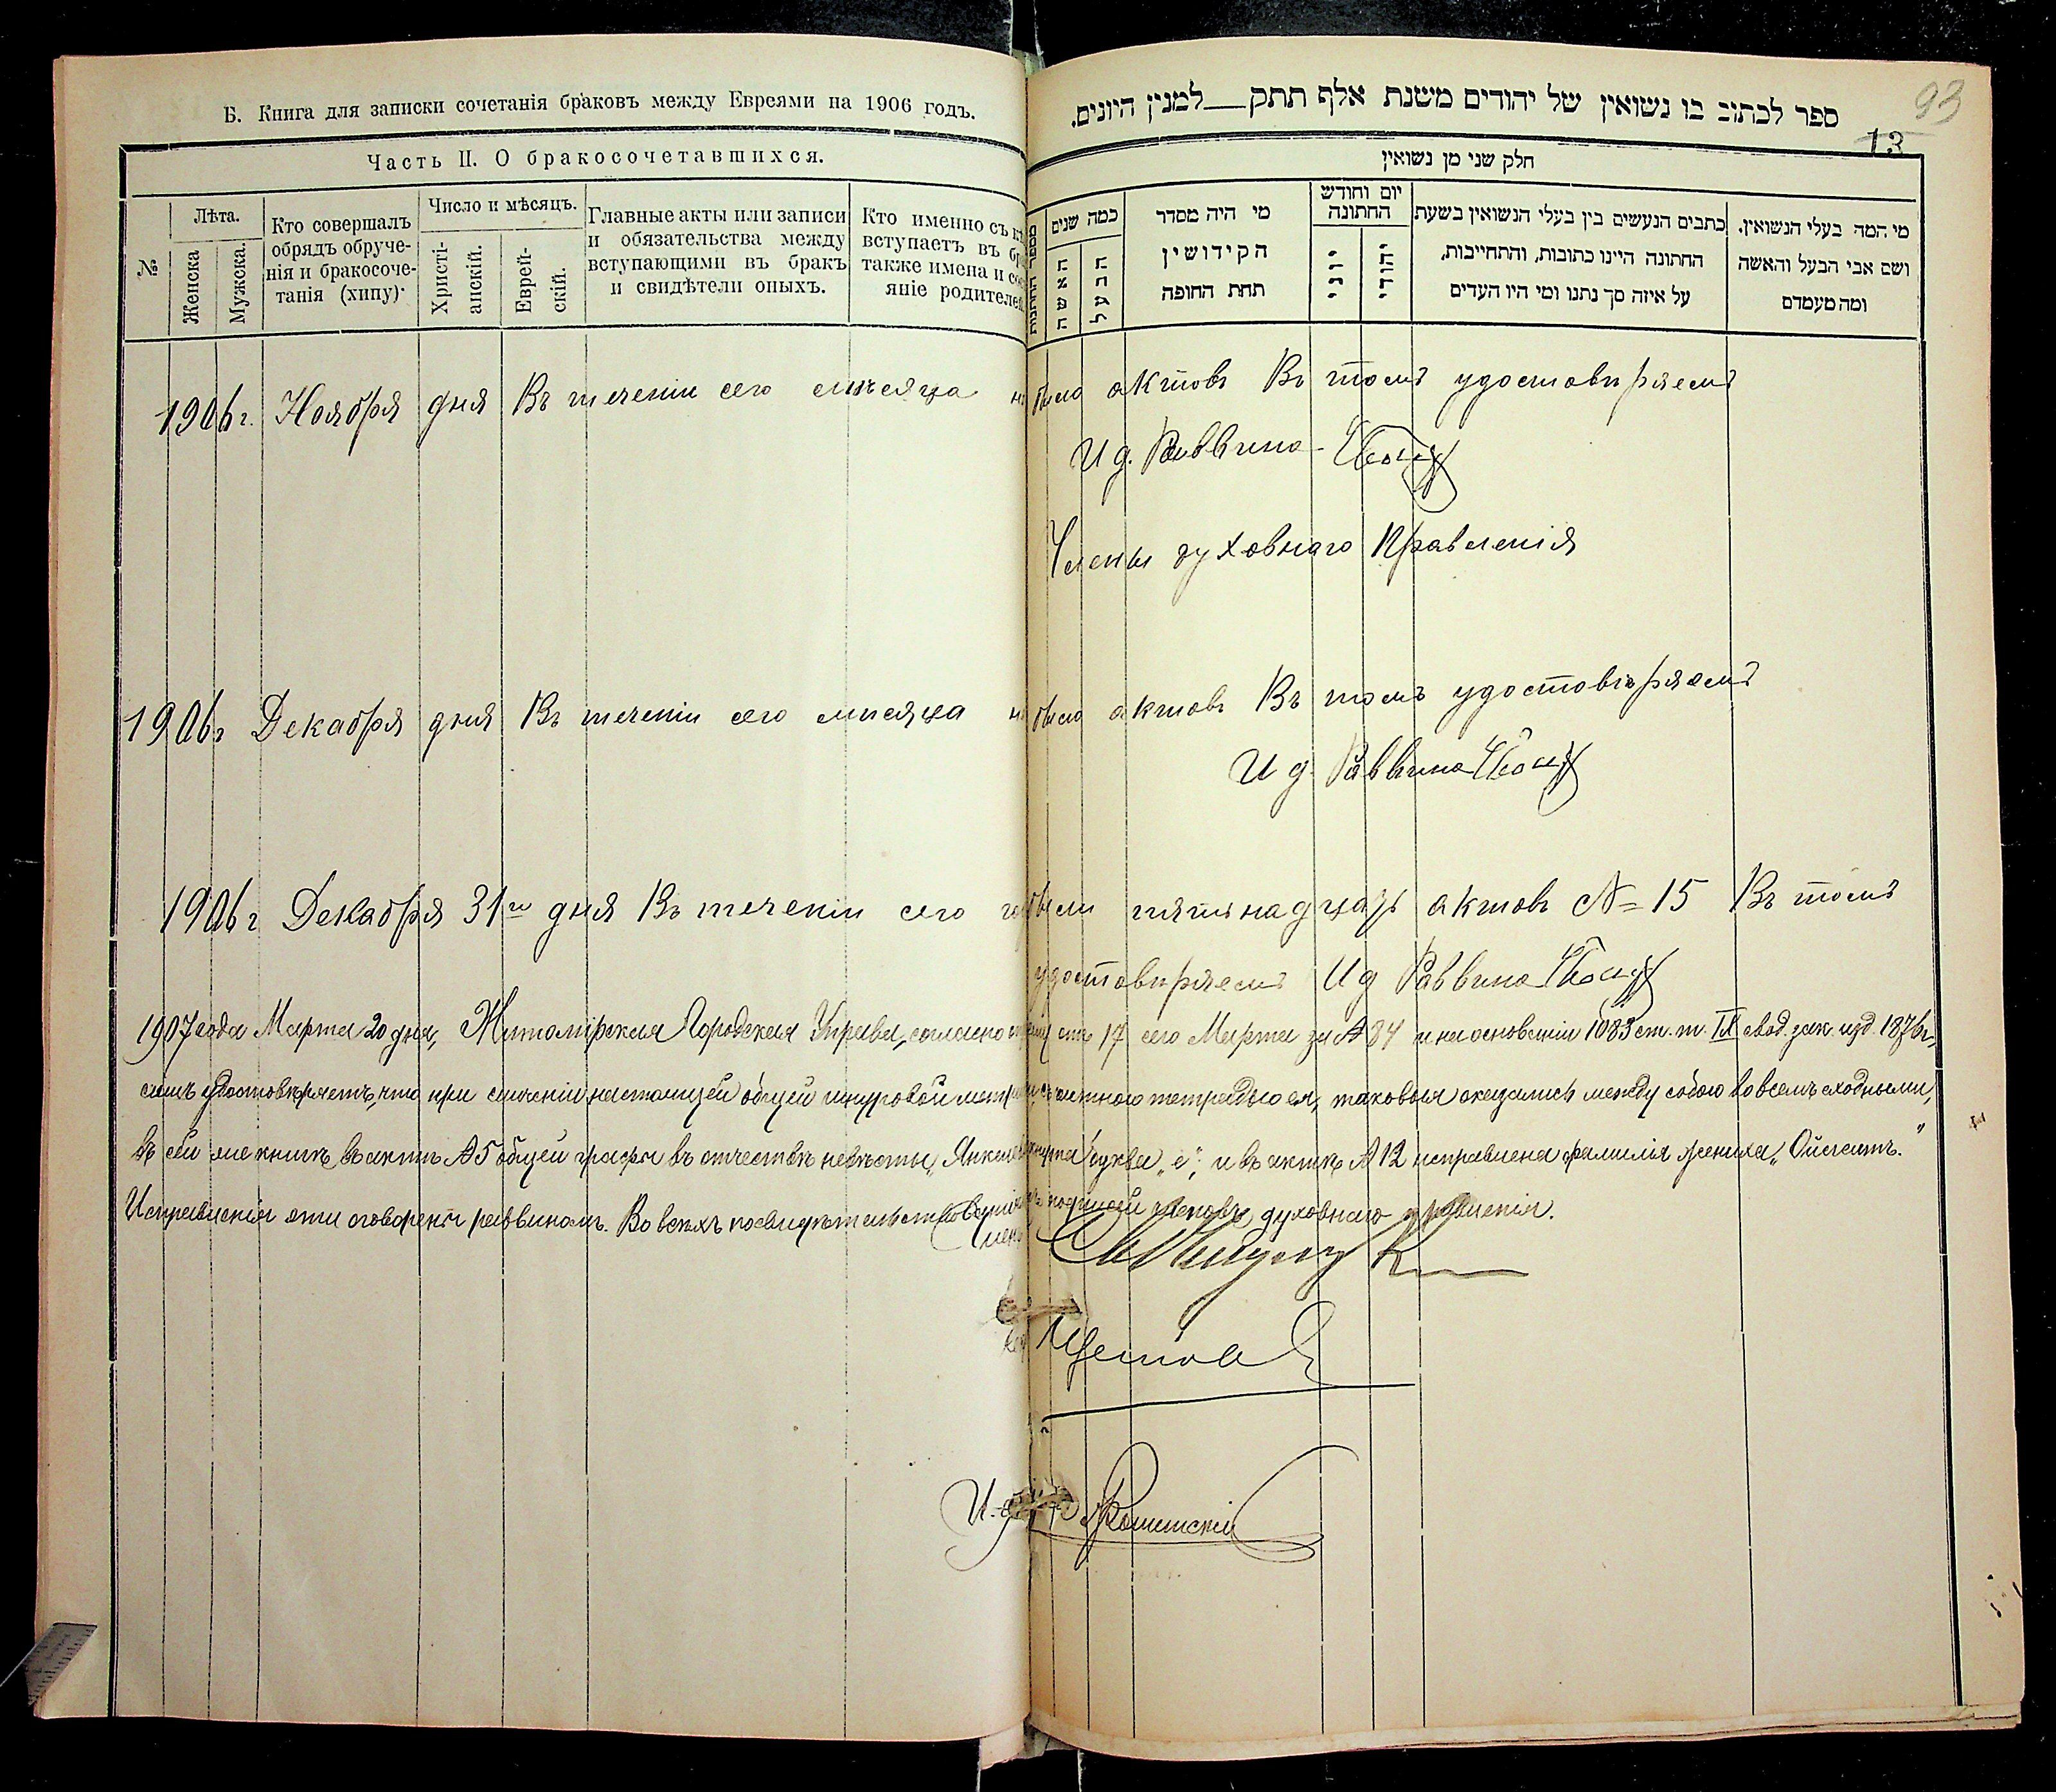 Б. Книга для записки сочетанія браковъ между Евреями на 1906 годъ.
Часть II. О бракосочетавшихся.
№
Лѣта.
Женска
Мужска.
Кто совершалъ
обрядъ обруче-
нія и бракосоче-
танія (хипу)·
Число и мѣсяцъ.
Христі-
анскій.
Еврей-
скій.
Главные акты или записи
и обязательства между
вступающими въ бракъ
и свидѣтели оныхъ.
Кто именно съ
вступаетъ въ
также имена и
яніе родителе
93
ספר לכתוב בו נשואין של יהודים משנת אלף תתק—למנין היונים.
13
חלק שני מן נשואין
מספר החתונות
כמה שנים
האשה
הבעל
מי היה מסדר
הקידושין
תחת החופה
יום וחודש
החתונה
יוני
יהודי
כתבים הנעשים בין בעלי הנשואין בשעת
החתונה היינו כתובות, והתחייבות,
על איזה סך נתנו ומי היו העדים
מי המה בעלי הנשואין.
ושם אבי הבעל והאשה
ומה מעמדם
1906 г. Ноября дня Въ теченіи сего мѣсяца не было актовъ Въ томъ удостовѣряемъ
И д. Раввина
Члены духовнаго Правленія
1906 г Декабря дня Въ теченіи сего мѣсяца не было актовъ Въ томъ удостовѣряемъ
И д. Раввина
1906 г Декабря 31го дня Въ теченіи сего были пятьнадцать актовъ № 15 Въ томъ
удостовѣряемъ И д Раввина
1907 года Марта 20 дня, Житомірская Городская Управа, согласно отъ 17 сего Марта за № 84 и на основаніи 1083 ст. т. IX свод. зак. изд. 1876 г.,
симъ удостовѣряетъ, что при сличеніи настоящей общей шнуровой тетрадью ея, таковыя оказались между собою во всемъ сходными,
въ сей же книгѣ, въ актѣ № 5 общей графы въ отчествѣ невѣсты „ буква „е", и въ актѣ № 12 исправлена фамилія жениха „
Исправленія эти оговорены раввиномъ. Во всѣхъ подписей членовъ духовнаго правленія.